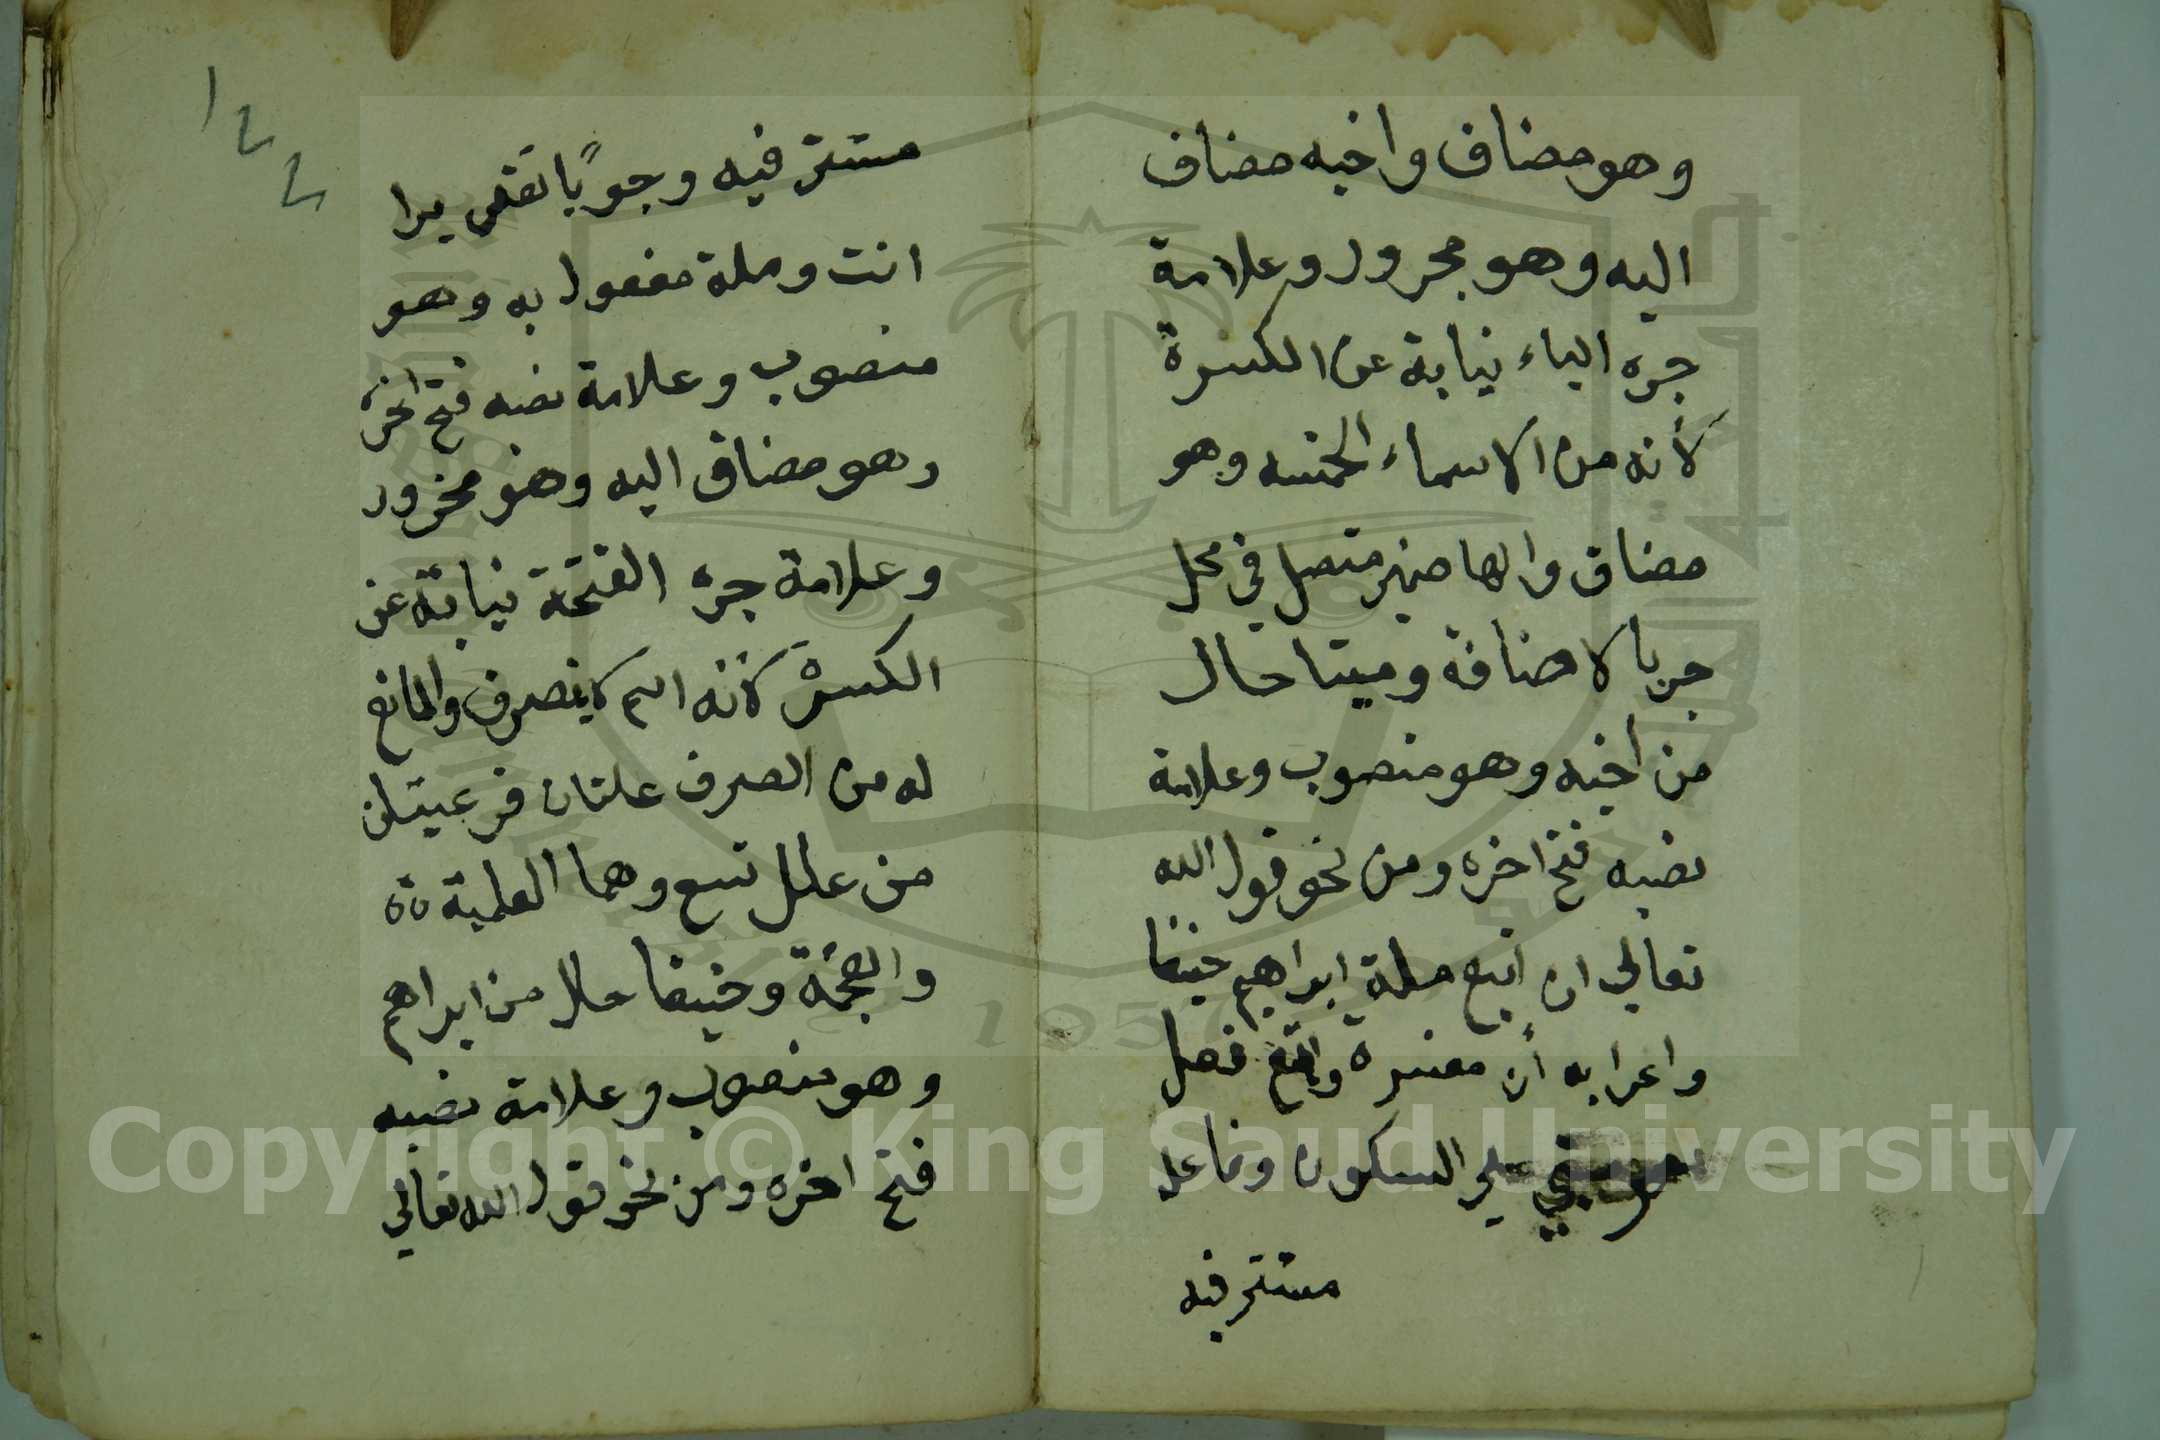 وهو مضاف واخيه مضاف
اليه وهو مجرور وعلامة
جره الياء نيابة عن الكسرة
لأنه من الاسماء الخمسه وهو
مضاف والها ضمير متصل في محل
جر بالاضافة وميتا حال
من اخيه وهو منصوب وعلامة
نصبه فتح اخره ومن نحو قول الله
تعالي ان اتبع ملة ابراهيم حنيفا
واعرابه أن مفسرة واتبع فعل
مبني علي السكون وفاعل
مستتر فيه
١٢٢
مستتر فيه وجوبًا تقديرا
انت وملة مفعول به وهو
منصوب وعلامة نصبه فتح اخره
وهو مضاف اليه وهو مجرور
وعلامة جره الفتحة نيابة عن
الكسرة لأنه اسم لاينصرف والمانع
له من الصرف علتان فرعيتان
من علل تسع وهما العلمية
والعجمة وحنيفا حال من ابراهيم
وهو منصوب وعلامة نصبه
فتح اخره ومن نحو قول الله تعالي
Copyright © King Saud University
1957